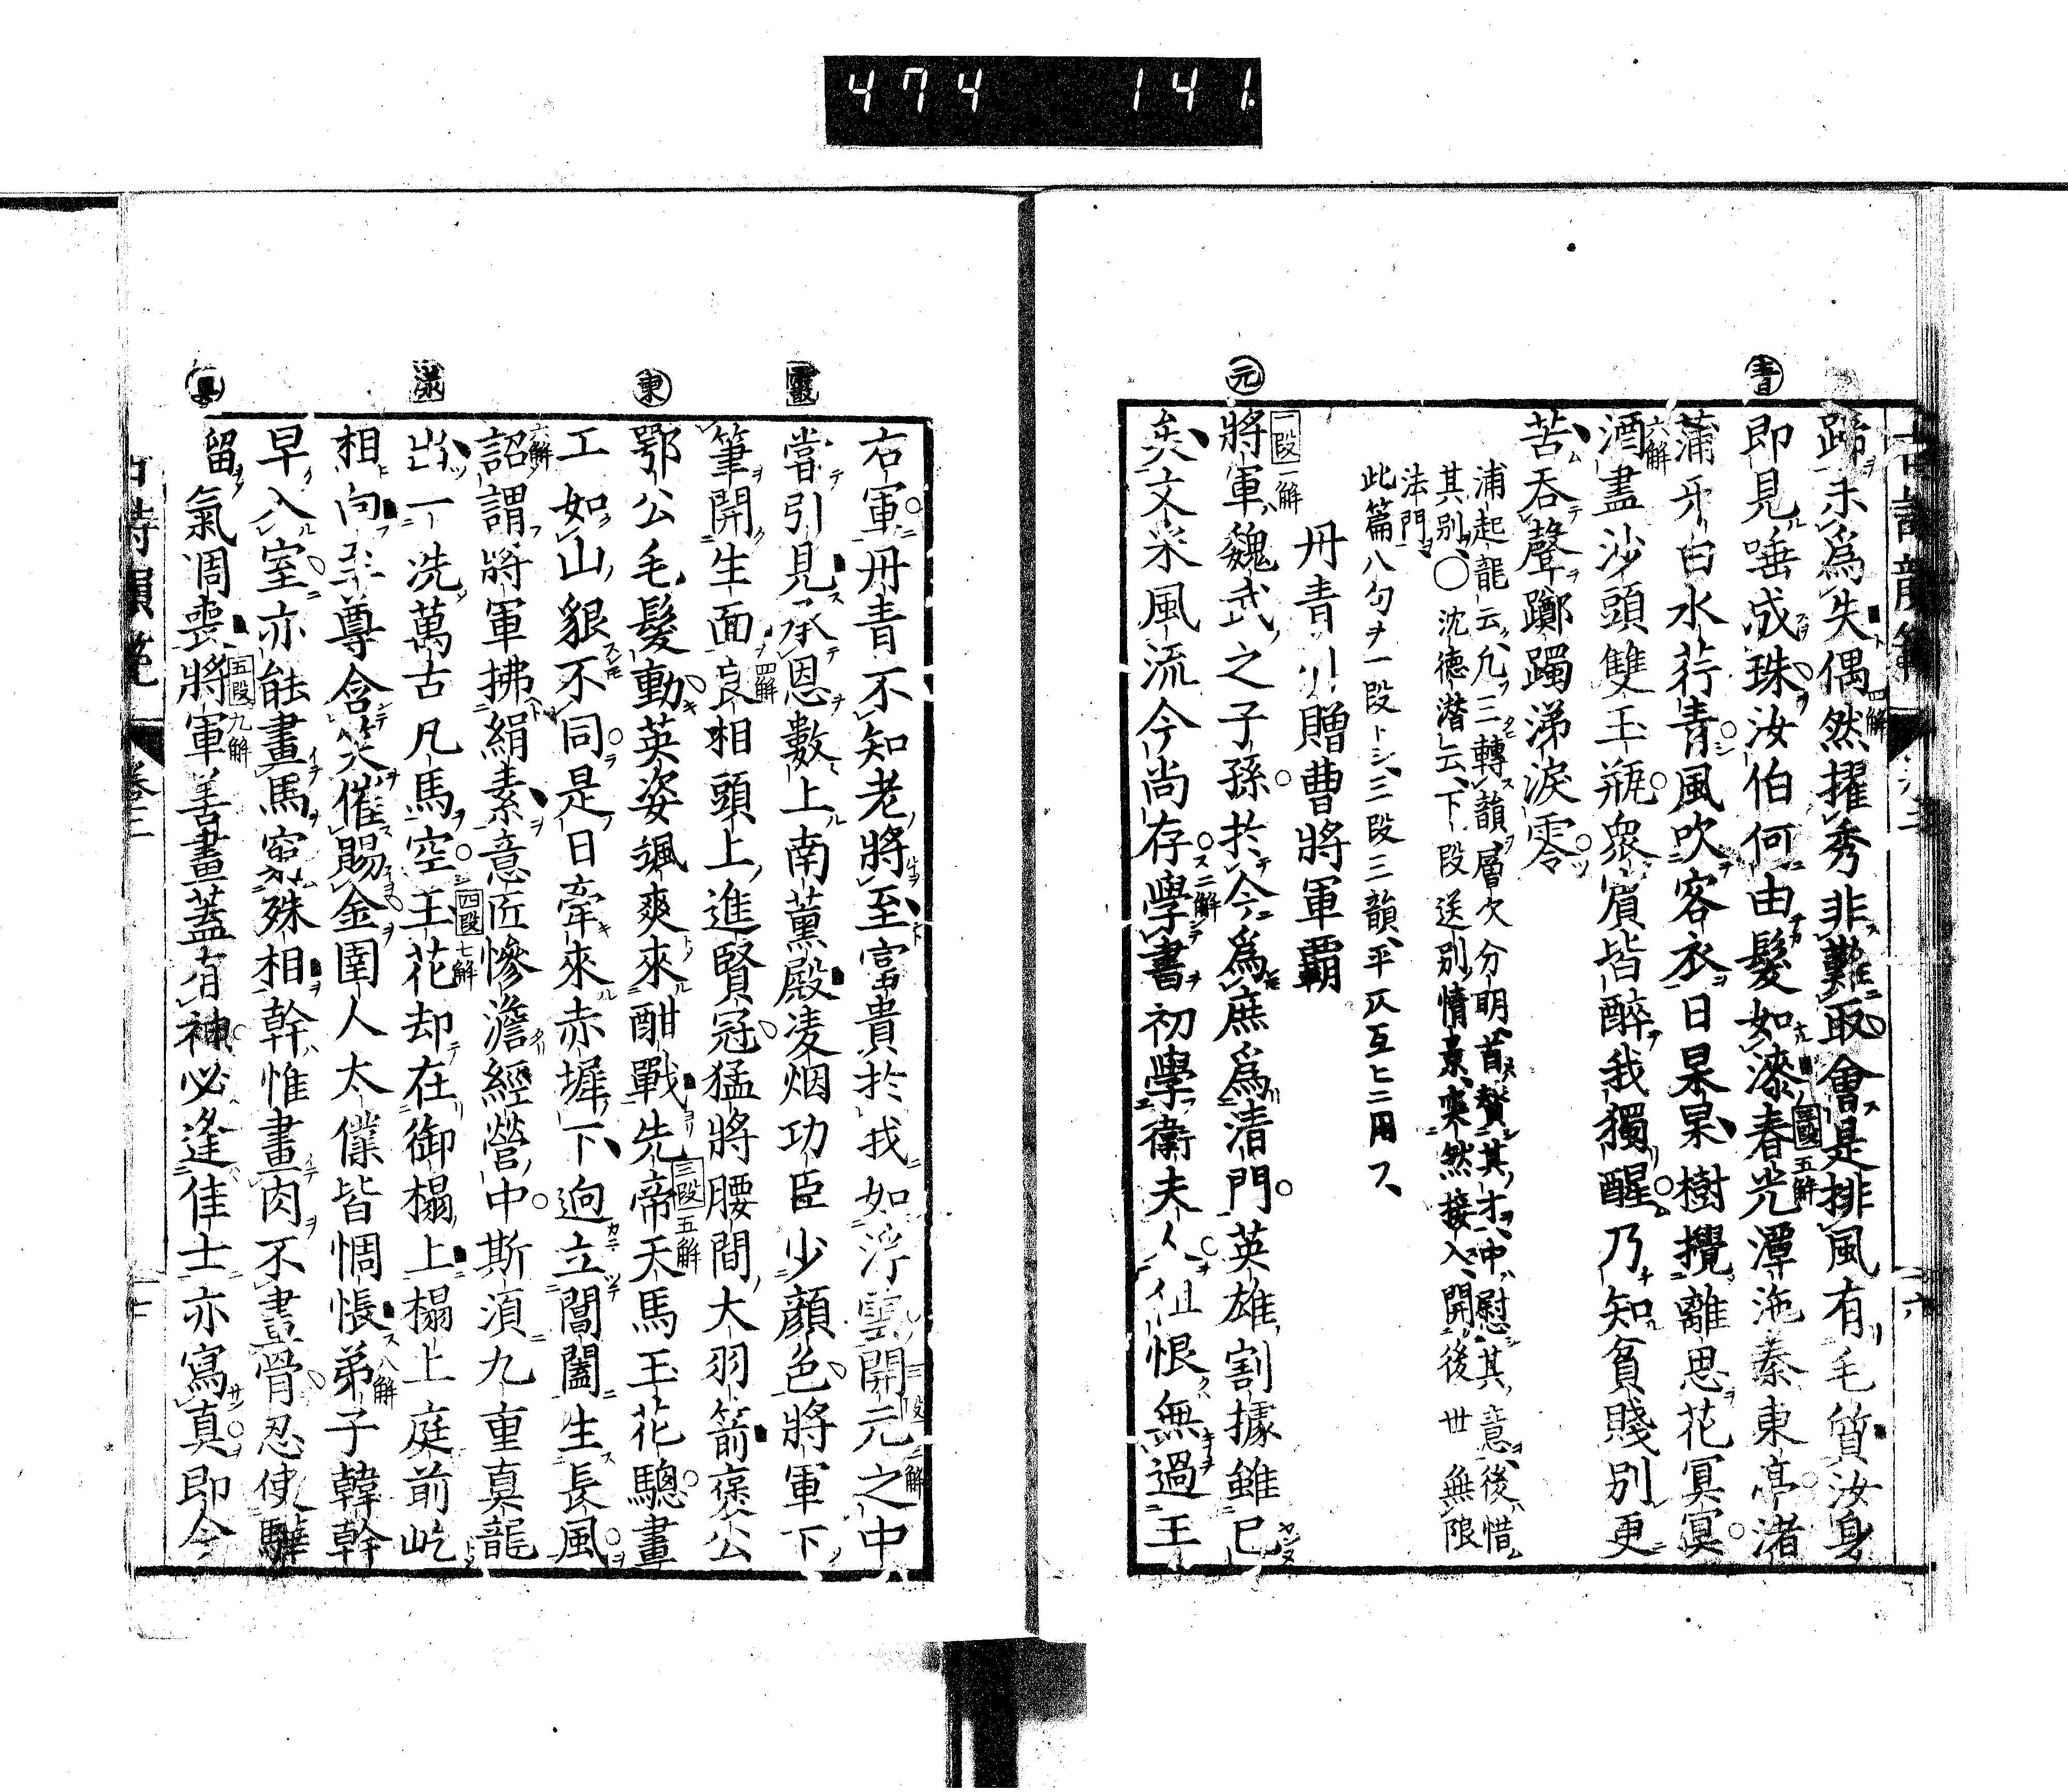 474 141.
古詩韻範
青
元
蹄未為失偶然擢秀非難取會是排風有毛質汝身
即見唾成珠汝伯何由髮如漆春光潭沲秦東亭渚
蒲牙白水荇青風吹客衣日杲杲樹攪離思花冥冥
酒盡沙頭雙玉瓶衆賓皆醉我獨醒乃知貧賤別更
苦吞聲躑躅涕淚零
浦起龍云凢三轉韻層次分明首贊其才中慰其意後惜
其別○沈德潛云下段送別情景突然接入開後世無限
法門
此篇八句ヲ一段トシ三段三韻平仄互ヒニ用フ
丹青引贈曹將軍霸
將軍魏武之子孫於今為庶為清門英雄割據雖已
矣文采風流今尚存學書初學衛夫人但恨無過王
東
右軍丹青不知老將至富貴於我如浮雲開元之中
嘗引見承恩數上南薰殿凌烟功臣少顏色將軍下
筆開生面良相頭上進賢冠猛將腰間大羽箭褒公
鄂公毛髮動英姿颯爽來酣戰先帝天馬玉花驄畫
工如山貌不同是日牽來赤墀下迥立閶闔生長風
詔謂將軍拂絹素意匠慘澹經營中斯須九重真龍
出一洗萬古凡馬空玉花却在御榻上榻上庭前屹
相向至尊含笑催賜金圉人太僕皆惆悵弟子韓幹
早入室亦能畫馬窮殊相幹惟畫肉不畫骨忍使驊
留氣凋喪將軍善畫蓋有神必逢佳士亦寫真即今
古詩韻範
卷三